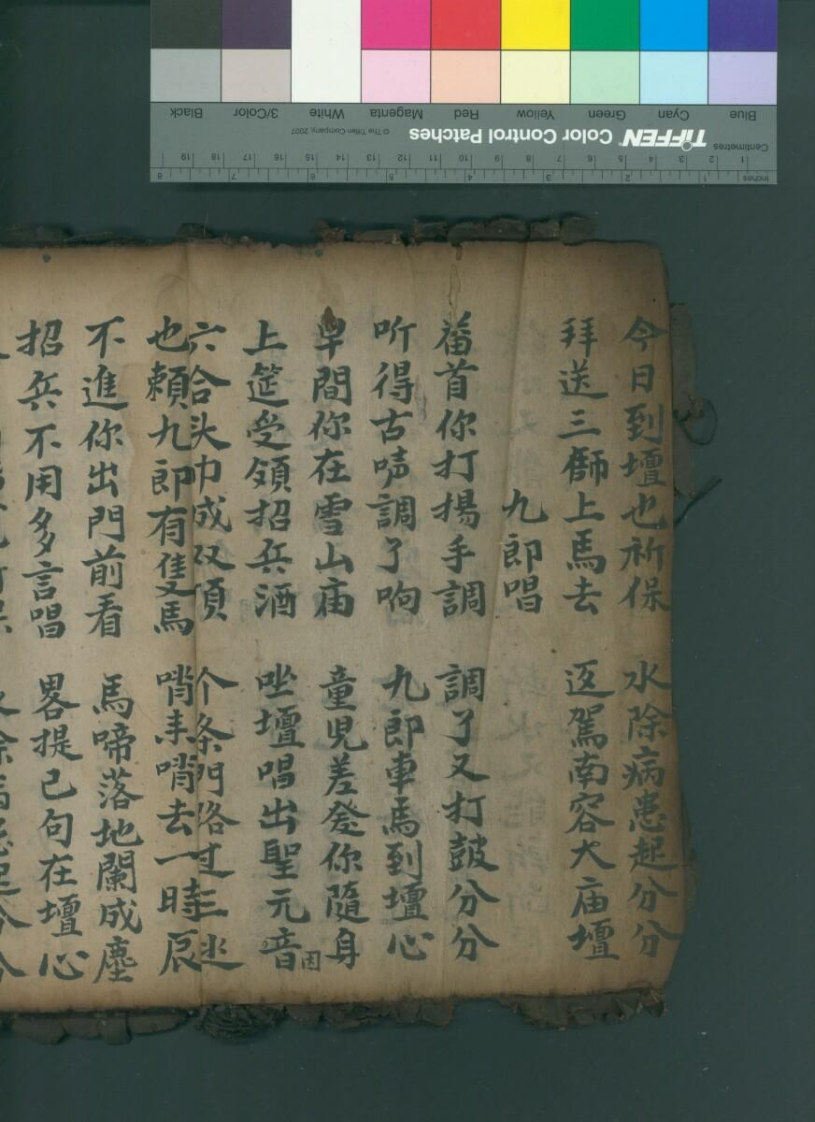 今日到壇也祈保 水除病患起分分
拜送三師上馬去 返駕南容大庙壇
九郎唱
首你打揚手調 調了又打鼓分分
听得古唠調了响 九郎車馬到壇心
早間你在雪山庙 童児差發你隨身
上筵受領招兵酒 坐壇唱出聖元音
因
六合头巾成双頂 个条門路过三
也賴九郎有隻馬 哨来哨去一時辰
不進你出門前看 馬啼落地闌成塵
招兵不用多言唱 畧提己句在壇心
Blue Cyan Green Yellow Red Magenta White 3/Color Black
TIFFEN Color Control Patches © The Tiffen Company, 2007
Centimetres 1 2 3 4 5 6 7 8 9 10 11 12 13 14 15 16 17 18 19
Inches 1 2 3 4 5 6 7 8